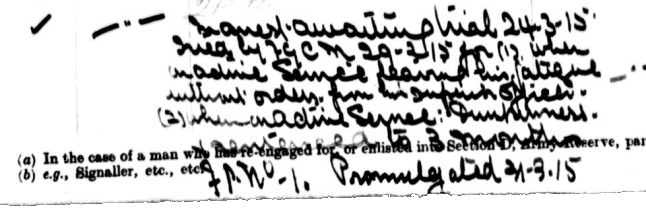 In arrest awaiting trial 24-3-15
Tried by F.G.C.M. 29-3-15 for (1) when
on active Service leaving his fatigue
without orders from his superior officer.
(2) when on active Service: Drunkenness.
Sentenced to 3 months
(a) In the case of a man who has re-engaged for, or enlisted into Section D, Army Reserve, par
(b) e.g., Signaller, etc., etc.
F.P. No-1. Promulgated 31-3.15